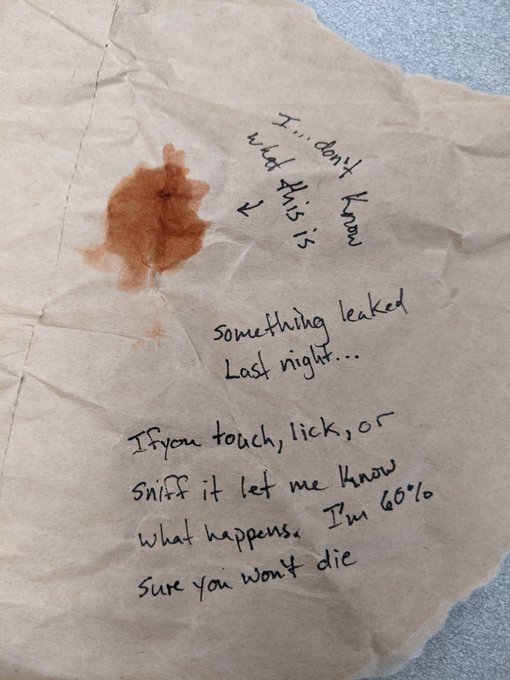 I...don't know
what this is
something leaked
Last night...
If you touch, lick, or
sniff it let me know
what happens. I'm 60%
sure you won't die